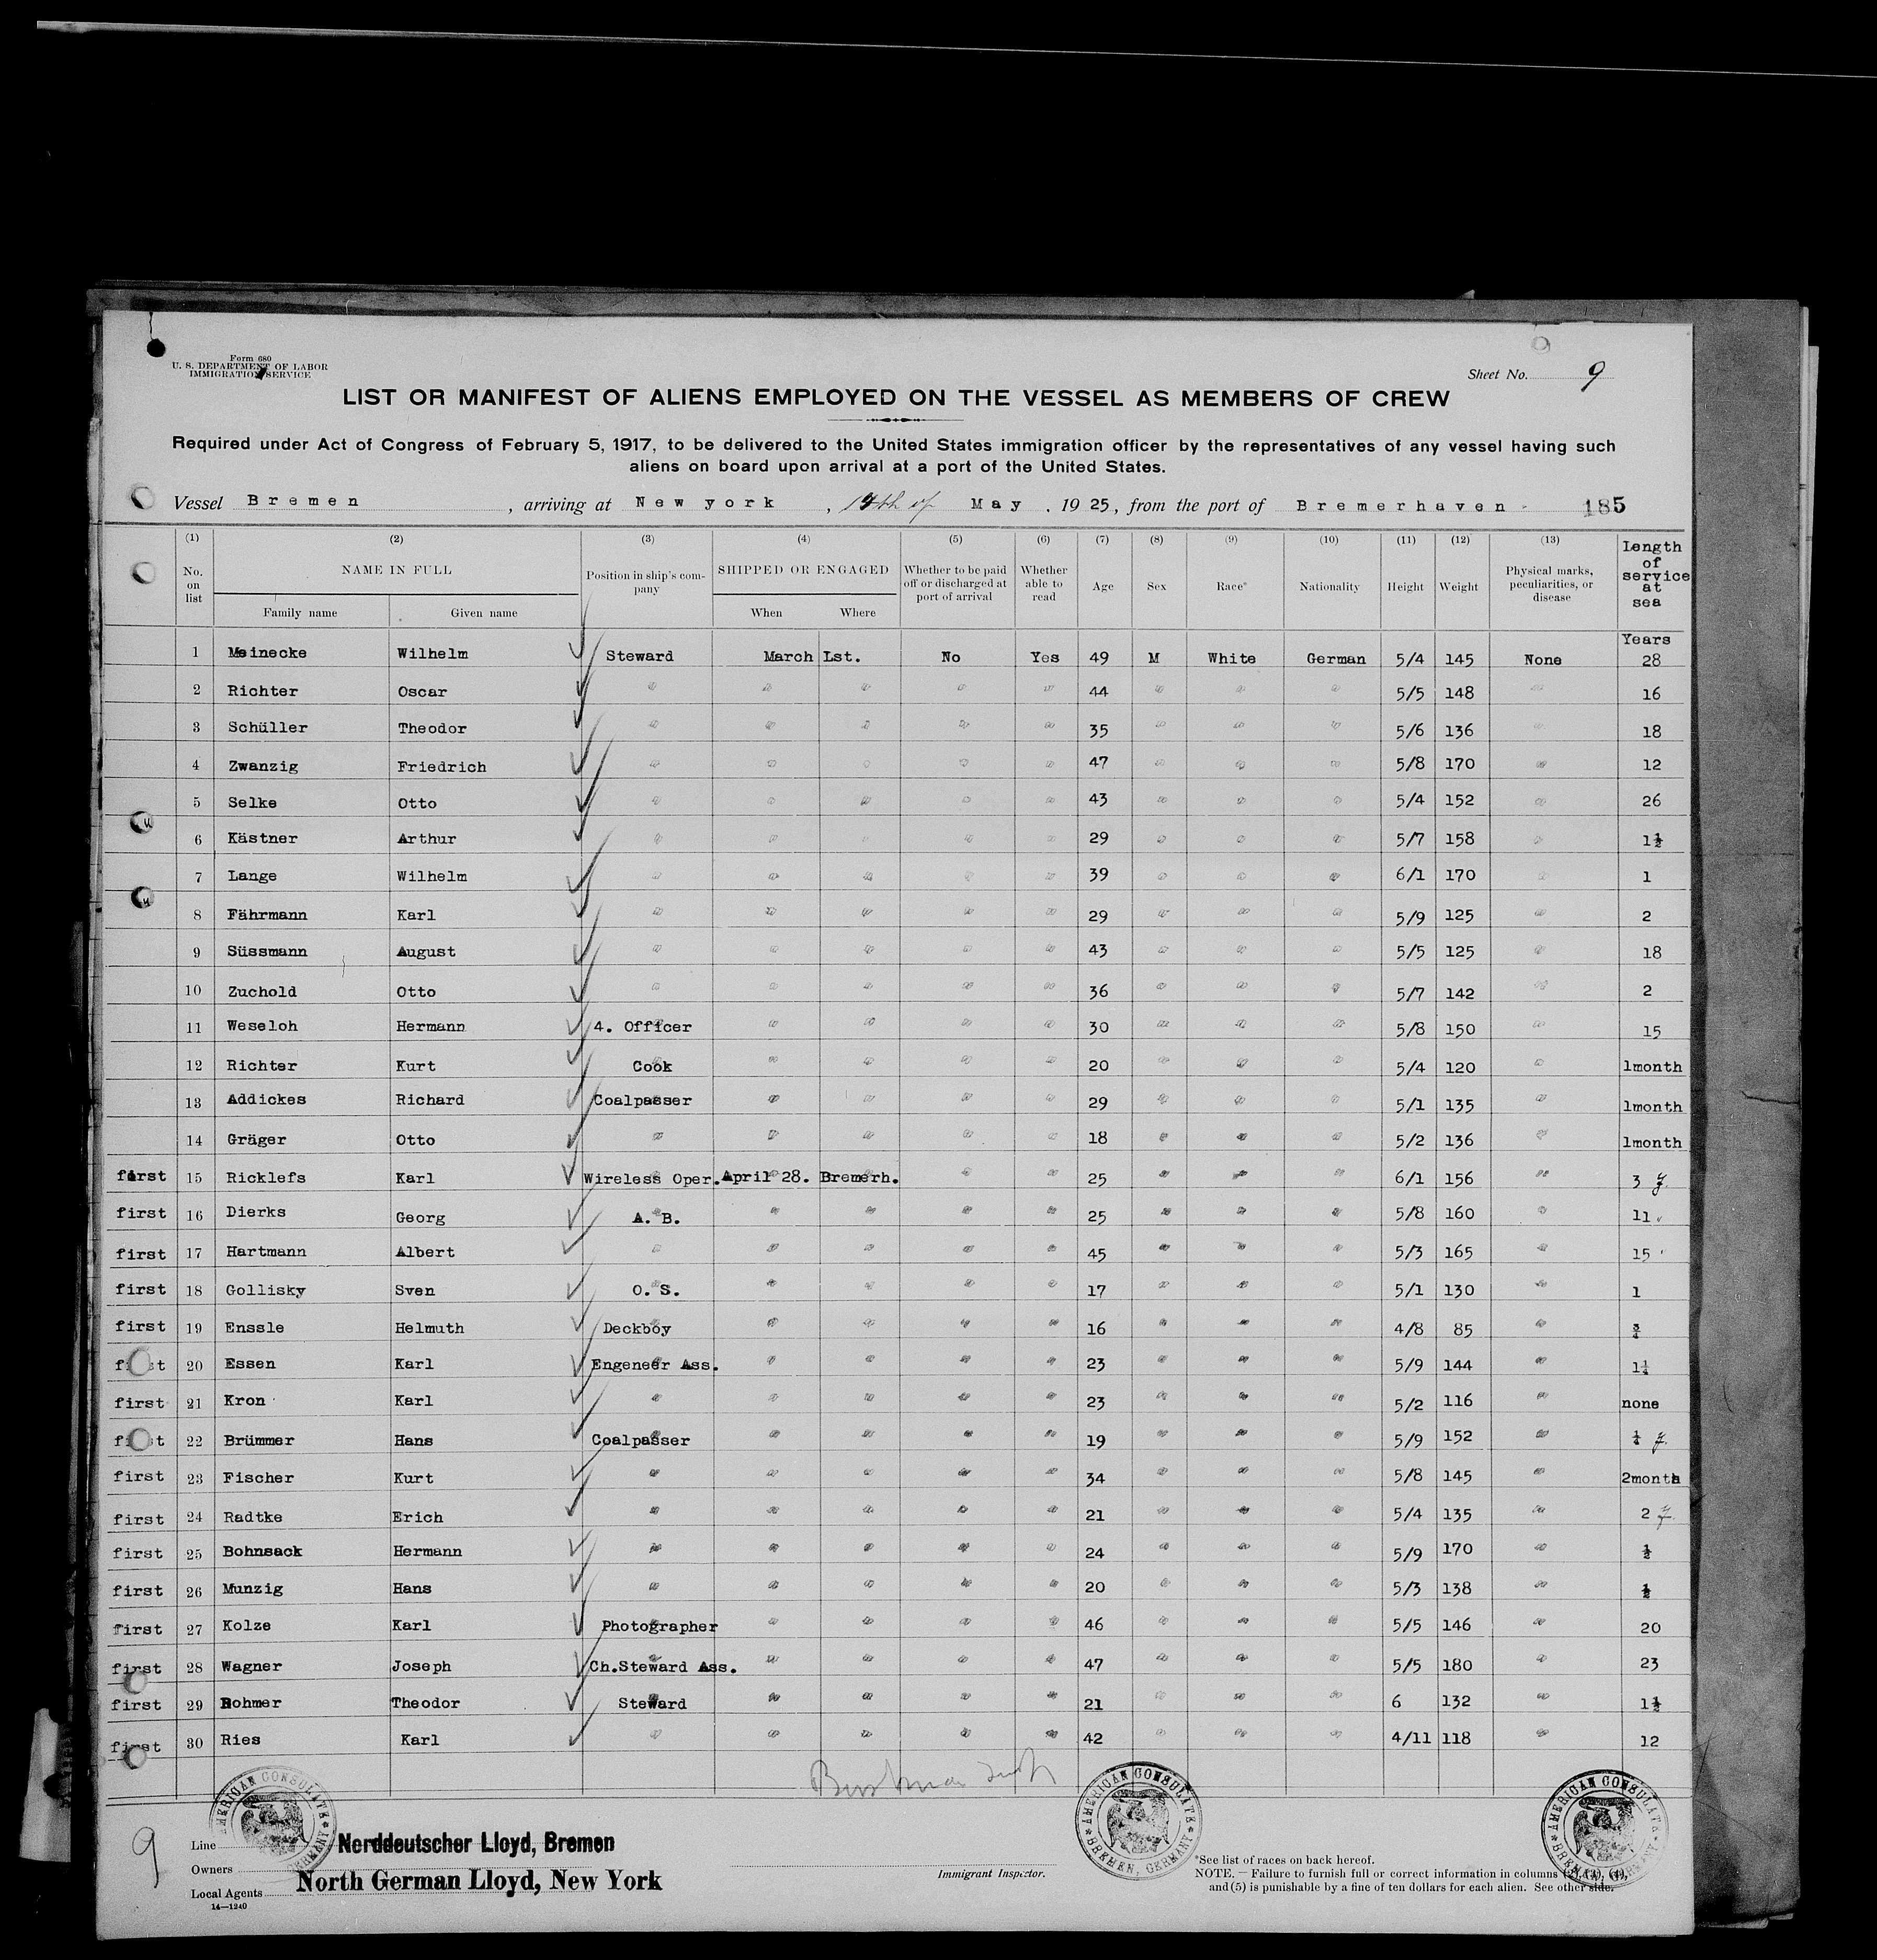 Form 680
U. S. DEPARTMENT OF LABOR
IMMIGRATION SERVICE
Sheet No. 9
LIST OR MANIFEST OF ALIENS EMPLOYED ON THE VESSEL AS MEMBERS OF CREW
Required under Act of Congress of February 5, 1917, to be delivered to the United States immigration officer by the representatives of any vessel having such
aliens on board upon arrival at a port of the United States.
Vessel Bremen, arriving at New york, 14th of May. 1925, from the port of Bremerhaven 185
(1) (2) (3) (4) (5) (6) (7) (8) (9) (10) (11) (12) (13) Length of service at sea
No. on list NAME IN FULL Position in ship's company SHIPPED OR ENGAGED Whether to be paid off or discharged at port of arrival Whether able to read Age Sex Race* Nationality Height Weight Physical marks, peculiarities, or disease
Family name Given name When Where
Years
1 Meinecke Wilhelm Steward March 1st. No Yes 49 M White German 5/4 145 None 28
2 Richter Oscar " " " " " 44 " " " 5/5 148 " 16
3 Schüller Theodor " " " " " 35 " " " 5/6 136 " 18
4 Zwanzig Friedrich " " " " " 47 " " " 5/8 170 " 12
5 Selke Otto " " " " " 43 " " " 5/4 152 " 26
6 Kästner Arthur " " " " " 29 " " " 5/7 158 " 1½
7 Lange Wilhelm " " " " " 39 " " " 6/1 170 " 1
8 Fährmann Karl " " " " " 29 " " " 5/9 125 " 2
9 Süssmann August " " " " " 43 " " " 5/5 125 " 18
10 Zuchold Otto " " " " " 36 " " " 5/7 142 " 2
11 Weseloh Hermann 4. Officer " " " " 30 " " " 5/8 150 " 15
12 Richter Kurt Cook " " " " 20 " " " 5/4 120 " 1month
13 Addickes Richard Coalpasser " " " " 29 " " " 5/1 135 " 1month
14 Gräger Otto " " " " " 18 " " " 5/2 136 " 1month
first 15 Ricklefs Karl Wireless Oper. April 28. Bremerh. " " 25 " " " 6/1 156 " 3 y.
first 16 Dierks Georg A. B. " " " " 25 " " " 5/8 160 " 11
first 17 Hartmann Albert " " " " " 45 " " " 5/3 165 " 15
first 18 Gollisky Sven O. S. " " " " 17 " " " 5/1 130 " 1
first 19 Enssle Helmuth Deckboy " " " " 16 " " " 4/8 85 " ¾
first 20 Essen Karl Engeneer Ass. " " " " 23 " " " 5/9 144 " 1¼
first 21 Kron Karl " " " " " 23 " " " 5/2 116 " none
first 22 Brümmer Hans Coalpasser " " " " 19 " " " 5/9 152 " ¼ y.
first 23 Fischer Kurt " " " " " 34 " " " 5/8 145 " 2month
first 24 Radtke Erich " " " " " 21 " " " 5/4 135 " 2 y.
first 25 Bohnsack Hermann " " " " " 24 " " " 5/9 170 " ½
first 26 Munzig Hans " " " " " 20 " " " 5/3 138 " ½
first 27 Kolze Karl Photographer " " " " 46 " " " 5/5 146 " 20
first 28 Wagner Joseph Ch.Steward Ass. " " " " 47 " " " 5/5 180 " 23
first 29 Bohmer Theodor Steward " " " " 21 " " " 6 132 " 1½
first 30 Ries Karl " " " " " 42 " " " 4/11 118 " 12
AMERICAN CONSULATE
AMERICAN CONSULATE BREMEN, GERMANY
AMERICAN CONSULATE BREMEN, GERMANY
9
Line Norddeutscher Lloyd, Bremen
Owners
Local Agents North German Lloyd, New York
14—1240
Immigrant Inspector.
*See list of races on back hereof.
NOTE. — Failure to furnish full or correct information in columns (2), (3), (4),
and (5) is punishable by a fine of ten dollars for each alien. See other side.